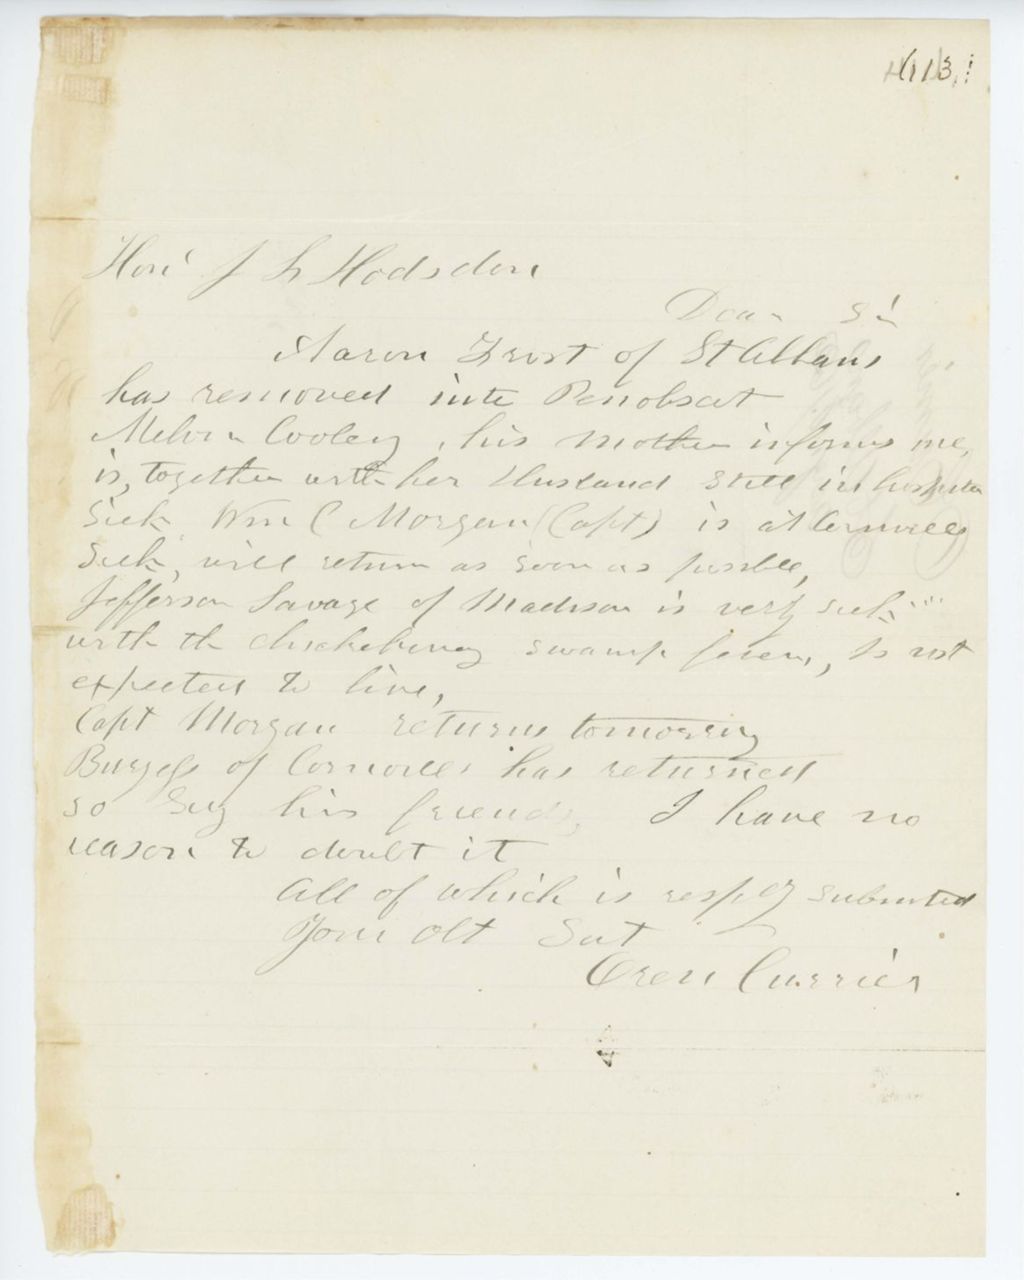 Hon J L Hodsdon
Dear Sir
Aaron Frost of St Albans
has removed into Penobscot
Melvin Cooley, his mother informs me,
is, together with her Husband still in hospital
sick Wm C Morgan (Capt) is at Cornville
sick, will return as soon as possble,
Jefferson Savage of Madison is very sick
with th swamp fever, Is not
expected to live,
Capt Morgan returns tomorrow
Burgess of Cornville has returned
so say his friends, I have no
reason to doubt it
All of which is resply submitted
Your Obt Svt
Oren Currier